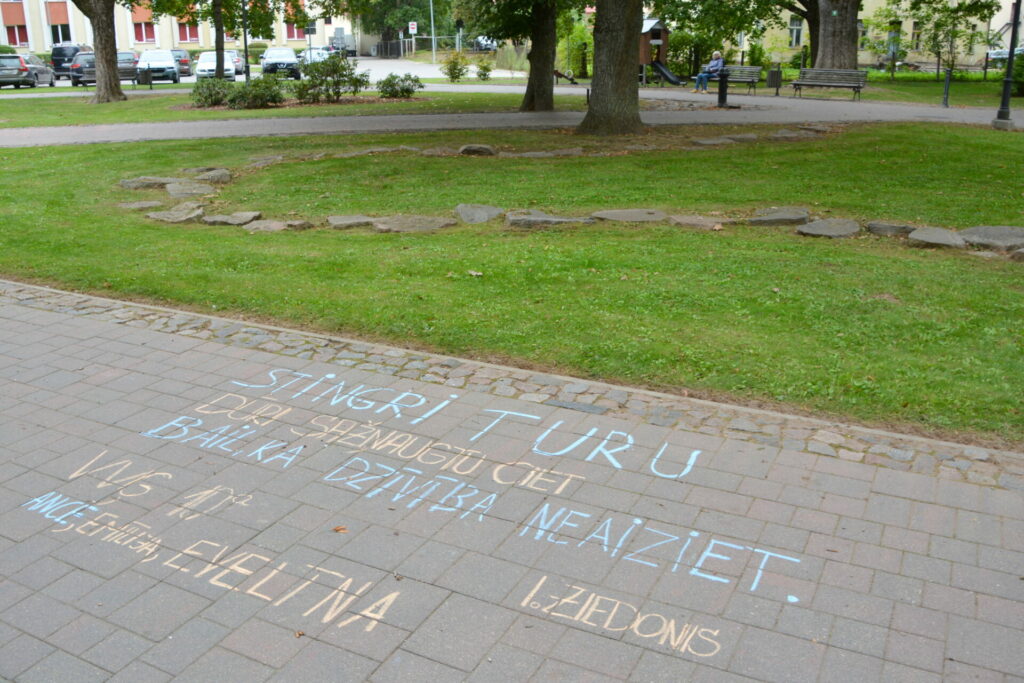 STINGRI TURU
DURI SAŽŅAUGTU CIET
BAIL, KA DZĪVĪBA NEAIZIET.
I. ZIEDONIS
VVĢ 10.
ANCE, EMĪLIJA, EVELĪNA